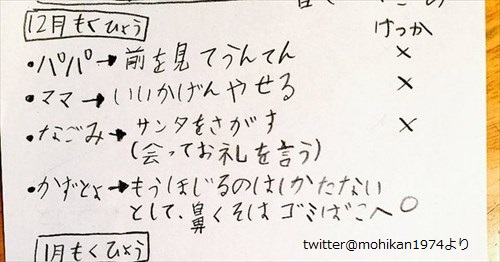 12月もくひょう
けっか
・パパ→前を見てうんてん ×
・ママ→いいかげんやせる ×
・なごみ→サンタをさがす ×
(会ってお礼を言う)
・かずとよ→もうほじるのはしかたない
として、鼻くそはゴミばこへ ○
1月もくひょう
twitter@mohikan1974より